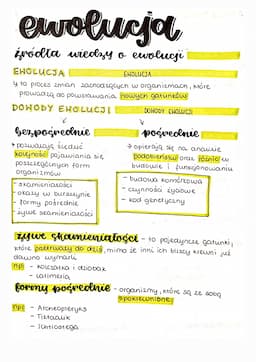 ewolucja
źródła wiedzy o ewolucji
EWOLUCJA EWOLUCJA
to proces zmian zachodzących w organizmach, które
prowadzą do powstawania nowych gatunków
DOWODY EWOLUCJI DOWODY EWOLUCJI
bezpośrednie
pozwalają śledzić
kolejność pojawiania się
poszczególnych form
organizmów
- skamieniałości
- okazy w bursztynie
- formy pośrednie
- żywe skamieniałości
pośrednie
opierają się na analizie
podobieństw oraz różnic w
budowie i funkcjonowaniu
- budowa komórkowa
- czynności życiowe
- kod genetyczny
żywe skamieniałości - to pojedyncze gatunki,
które przetrwały do dziś, mimo że inni ich bliscy krewni już
dawno wymarli
np. - kolczatka i dziobak
- latimeria
formy pośrednie - organizmy, które są ze sobą
spokrewnione
np. - Archeopteryks
- Tiktaalik
- Ichtiostega